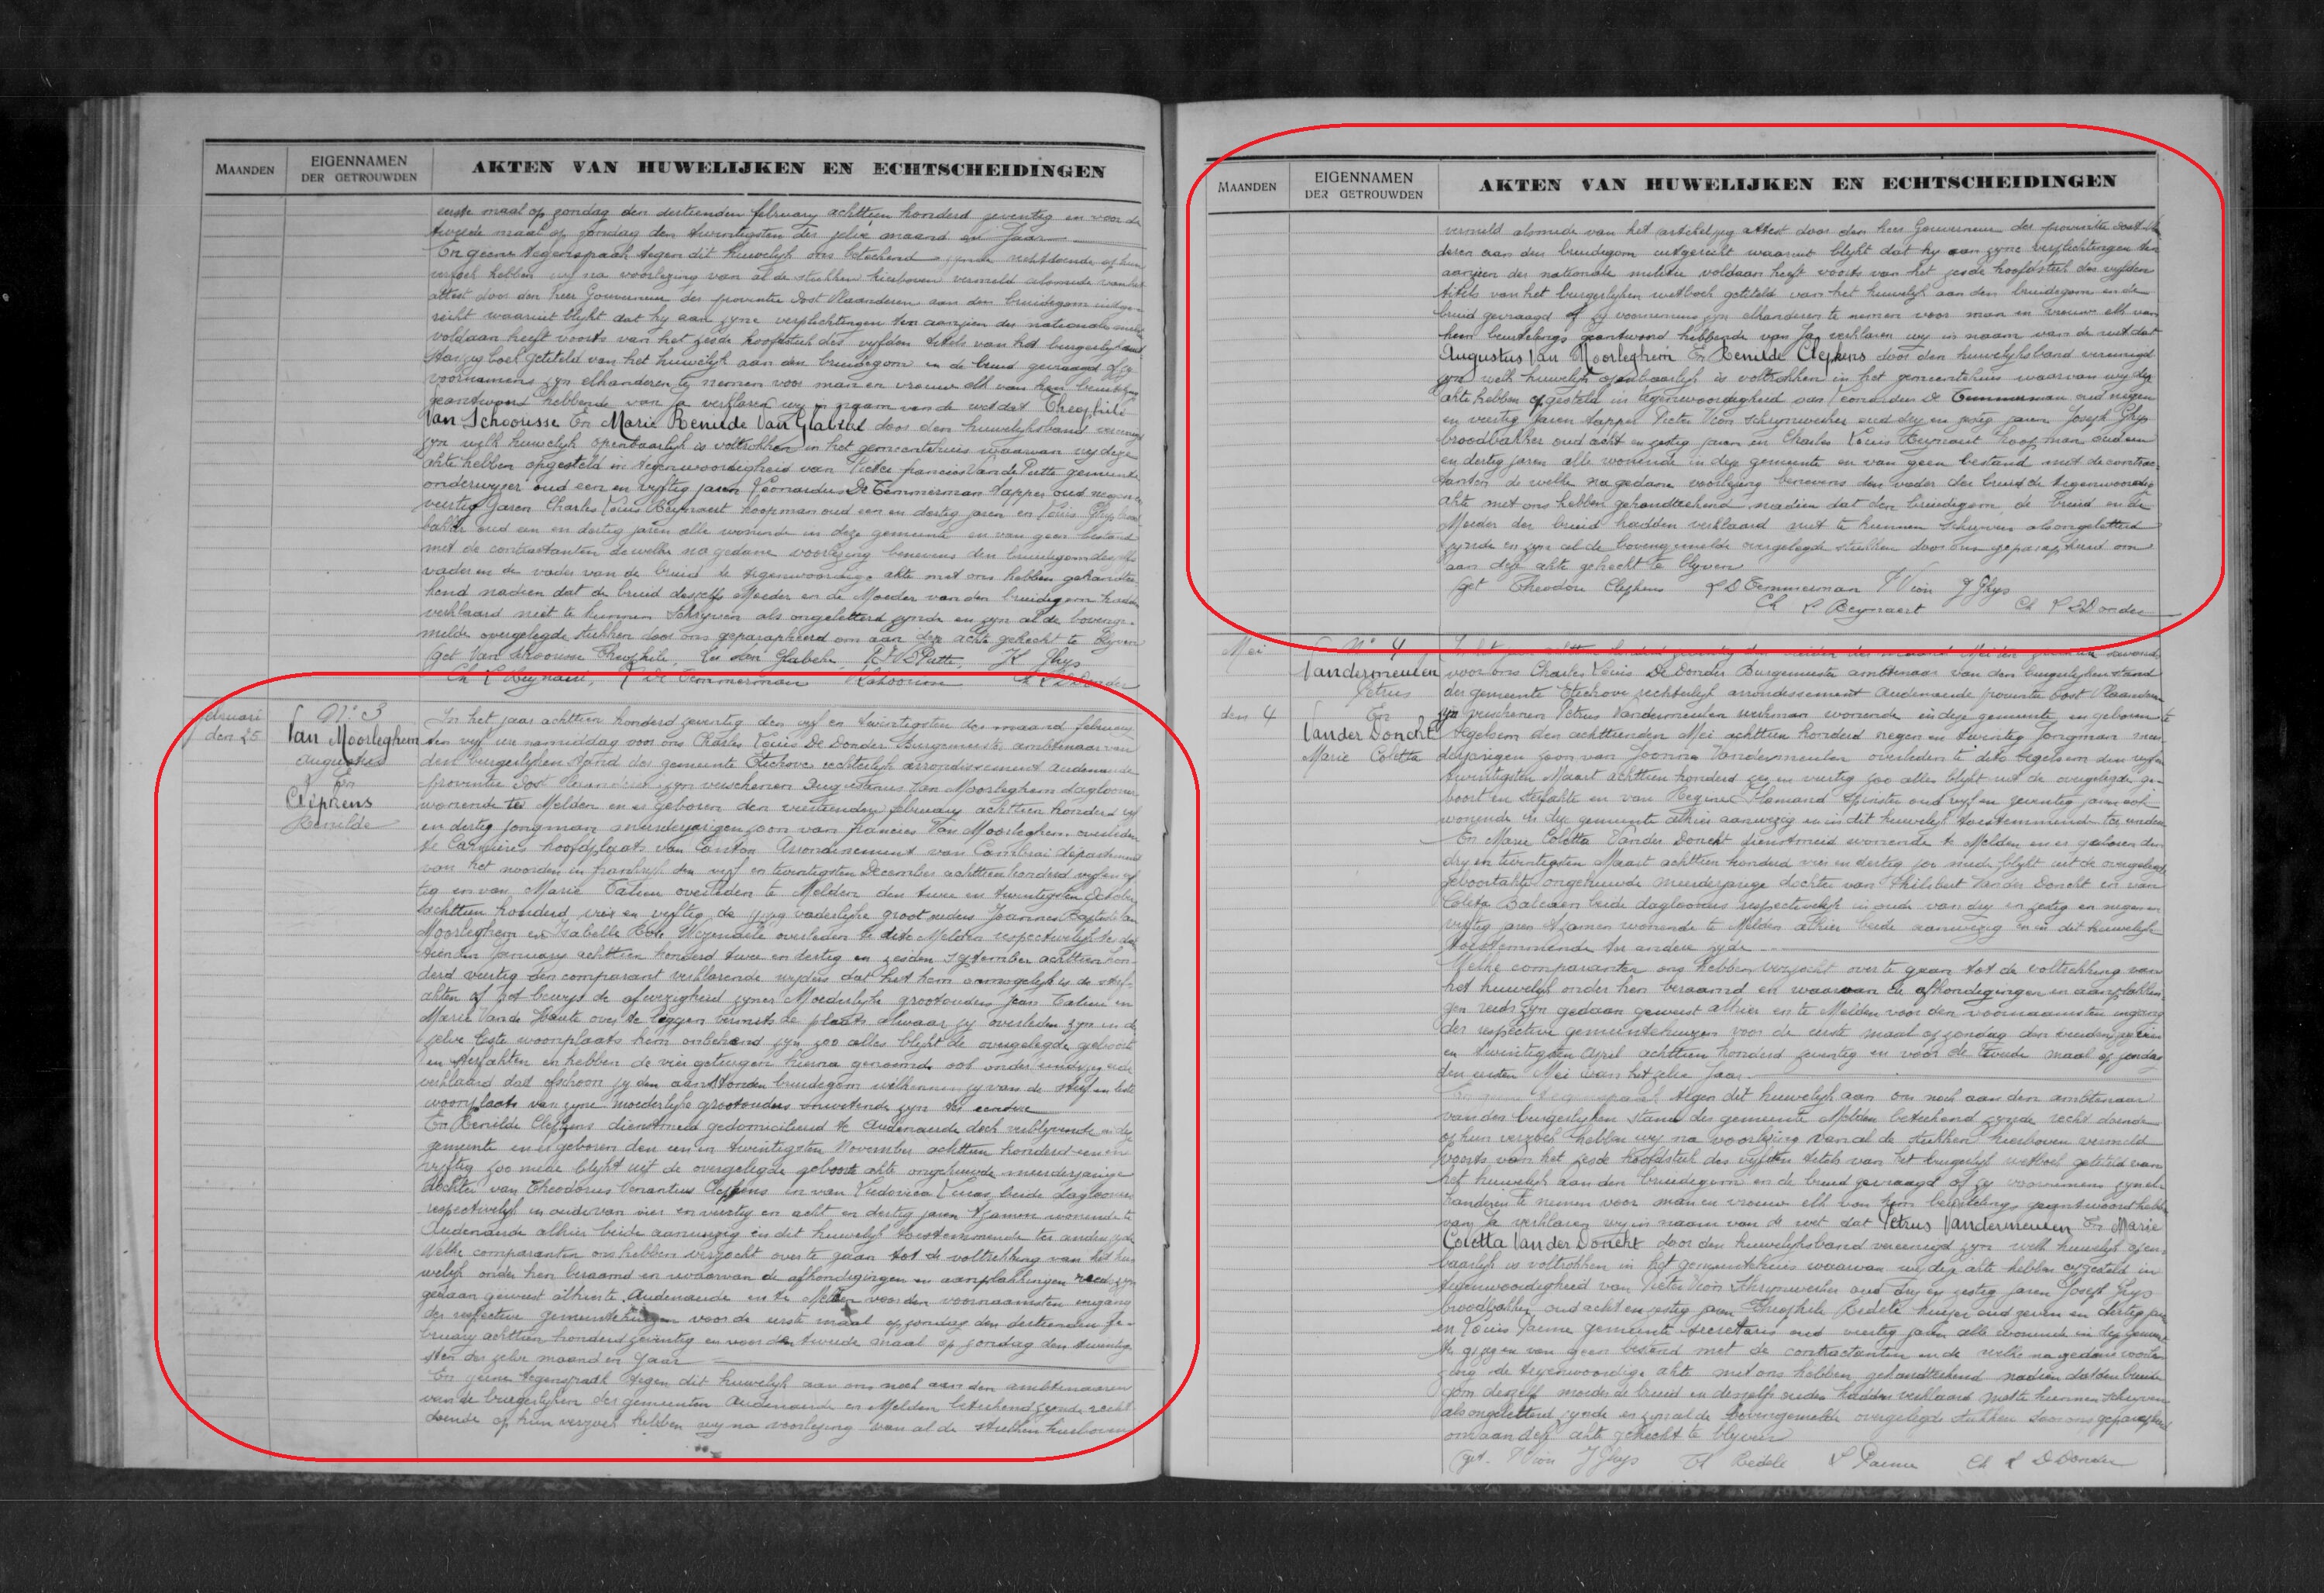 MAANDEN
EIGENNAMEN
DER GETROUWDEN
AKTEN VAN HUWELIJKEN EN ECHTSCHEIDINGEN
eerste maal op zondag den dertienden february achttien honderd zeventig en voor de
tweede maal op zondag den twintigsten der zelve maand en Jaar
En geene tegenspraak tegen dit huwelijk ons beteekend zynde rechtdoende op hun
verzoek hebben wy na voorlezing van al de stukken hierboven vermeld alsmede van het
attest door den heer Gouverneur der provintie Oost Vlaanderen aan den bruidegom
reikt waaruit blykt dat hy aan zyne verplichtingen ten aanzien der nationale
voldaan heeft voorts van het zesde hoofdstuk des vyfden titels van het burgerlyk
boek getiteld van het huwelijk aan den bruidegom en de bruid gevraagd of zy
voornemens zyn elkanderen te nemen voor man en vrouw elk van hun
geantwoord hebbende van ja verklaren wy in naam van de wet dat Theophile
Van Schoorisse En Marie Renilde Van Glabeke door den huwelyksband vereenigd
zyn welk huwelijk openbaarlyk is voltrokken in het gemeentehuis waarvan wy deze
akte hebben opgesteld in tegenwoordigheid van Victor francies Van de Putte gemeente
onderwyzer oud een en vyftig jaren Leonardus De Temmerman tapper oud negen en
veertig Jaren Charles Louis Beynaert koopman oud een en dertig jaren en Louis Ghys
bakker oud een en dertig jaren alle wonende in deze gemeente en van geen bestand
met de contractanten dewelke na gedane voorlezing benevens den bruidegom
vader en de vader van de bruid de tegenwoordige akte met ons hebben gehandtee-
kend nadien dat de bruid deszelfs Moeder en de Moeder van den bruidegom hadden
verklaard niet te kunnen schryven als ongeletterd zynde en zyn al de bovenge-
melde overgelegde stukken door ons geparapheerd om aan deze akte gehecht te blyven
(get Van Schoorisse Theophile, Van Glabeke, Putte, Ghys
Ch L Beynaert, L De Temmerman Ch L DDonder
februari
den 25
N° 3
Van Moorleghem
Augustus
En
Clepkens
Renilde
In het jaar achttien honderd zeventig den vyf en twintigsten der maand february
ten vyf ure namiddag voor ons Charles Louis De Donder Burgemeester ambtenaar van
den burgerlyken stand der gemeente Etichove rechterlyk arrondissement Audenaarde
provintie Oost Vlaanderen zyn verschenen Augustinus Van Moorleghem daglooner
wonende te Melden en er geboren den veertienden february achttien honderd vyf
en dertig jongman meerderjarigen zoon van francies Van Moorleghem overleden
te Carnieres hoofdplaats van Canton Arrondissement van Cambrai département
van het noorden in frankryk den vyf en twintigsten December achttien honderd
tig en van Marie overleden te Melden den twee en twintigsten October
achttien honderd vier en vyftig, de vaderlyke grootouders Joannes Baptiste Van
Moorleghem en Isabelle Rose overleden te dito Melden respectivelyk
tienden January achttien honderd twee en dertig en zesden September achttien hon-
derd veertig den comparant verklarende wyders dat het hem onmogelyk is de sterf-
akten of het bewys de afwezigheid zyner Moederlyke grootouders Jean en
Marie Van de Haute over te leggen vermits de plaats alwaar zy overleden zyn en de
zelve leste woonplaats hem onbekend zyn zoo alles blykt de overgelegde geboorte
en sterfakten en hebben de vier getuigen hierna genoemd ook onder
verklaard dat ofschoon zy den aanstaanden bruidegom wilkennen zy van de sterf en leste
woonplaats van zyne moederlyke grootouders onwetende zyn ter eendere
En Renilde Clepkens dienstmeid gedomicilieerd te Audenaarde doch verblyvende in deze
gemeente en er geboren den een en twintigsten November achttien honderd een en
vyftig zoo mede blykt uit de overgelegde geboorte akte ongehuwde minderjarige
dochter van Theodorus Venantius Clepkens en van Ludovica Lucas beide daglooners
respectivelyk in ouderdom vier en veertig en acht en dertig jaren tzamen wonende te
Audenaarde alhier beide aanwezig en in dit huwelyk toestemmende ter andere zyde
Welke comparanten ons hebben verzocht over te gaan tot de voltrekking van het hu-
welyk onder hen beraamd en waarvan de afkondigingen en aanplakkingen reeds zyn
gedaan geweest alhier te Audenaarde en te Melden voor den voornaamsten ingang
der respective gemeentehuizen voor de eerste maal op zondag den dertienden fe-
bruary achttien honderd zeventig en voor de tweede maal op zondag den twintig
sten der zelve maand en Jaar
En geene tegenspraak tegen dit huwelyk aan ons noch aan den ambtenaaren
van de burgerlyken der gemeenten Audenaarde en Melden beteekend zynde recht
doende op hun verzoek hebben wy na voorlezing van al de stukken hierboven
MAANDEN
EIGENNAMEN
DER GETROUWDEN
AKTEN VAN HUWELIJKEN EN ECHTSCHEIDINGEN
vermeld alsmede van het attest door den heer Gouverneur der provintie Oost Vla
deren aan den bruidegom uitgereikt waaruit blykt dat hy aan zyne verplichtingen ten
aanzien der nationale militie voldaan heeft voorts van het zesde hoofdstuk des vyfden
titels van het burgerlyken wetboek getiteld van het huwelyk aan den bruidegom en de
bruid gevraagd of zy voornemens zyn elkanderen te nemen voor man en vrouw elk van
hun beurtelings geantwoord hebbende van Ja verklaren wy in naam van de wet dat
Augustus Van Moorleghem En Renilde Clepkens door den huwelyksband vereenigd
zyn welk huwelyk openbaarlyk is voltrokken in het gemeentehuis waarvan wy deze
akte hebben opgesteld in tegenwoordigheid van Leonardus De Temmerman oud negen
en veertig Jaren tapper Pieter Vion schrynwerker oud dry en zestig jaren Joseph Ghys
broodbakker oud acht en zestig jaren en Charles Louis Beynaert koopman oud een
en dertig jaren alle wonende in deze gemeente en van geen bestand met de contrac-
tanten de welke na gedane voorlezing benevens den vader der bruid de tegenwoordige
akte met ons hebben gehandteekend nadien dat den bruidegom, de bruid en de
Moeder der bruid hadden verklaard niet te kunnen schryven als ongeletterd
zynde en zyn al de bovengemelde overgelegde stukken door ons geparapheerd om
aan deze akte gehecht te blyven
(get Theodore Clepkens L D Temmerman P Vion J Ghys
Ch L Beynaert Ch L DDonder
Mei
den 4
N° 4
Vandermeulen
Petrus
En
Vander Donckt
Marie Coletta
In het jaar achttien honderd zeventig den vierden der maand Mei
voor ons Charles Louis De Donder Burgemeester ambtenaar van den burgerlyken stand
der gemeente Etichove rechterlyk arrondissement Audenaarde provintie Oost Vlaanderen
zyn verschenen Petrus Vandermeulen werkman wonende in deze gemeente en geboren te
Segelsem den achttienden Mei achttien honderd negen en twintig Jongman meer-
derjarigen zoon van Joanna Vandermeulen overleden te dito Segelsem den
twintigsten Maart achttien honderd zes en veertig zoo alles blykt uit de overgelegde ge-
boort en sterfakte en van Regina spinster oud vyf en zeventig jaren ook
wonende in deze gemeente alhier aanwezig en in dit huwelyk toestemmende ter eendere
En Marie Coletta Vander Donckt dienstmeid wonende te Melden en er geboren den
dry en twintigsten Maart achttien honderd vier en dertig zoo mede blykt uit de overgelegde
geboortakte ongehuwde meerderjarige dochter van Philibert Vander Donckt en van
Coleta Balcaen beide daglooners respectivelyk in oude van dry en zestig en negen en
vyftig jaren tzamen wonende te Melden alhier beide aanwezig en in dit huwelyk
toestemmende ter andere zyde
Welke comparanten ons hebben verzocht over te gaan tot de voltrekking van
het huwelyk onder hen beraamd en waarvan de afkondigingen en aanplakkin-
gen reeds zyn gedaan geweest alhier en te Melden voor den voornaamsten ingang
der respective gemeentehuizen voor de eerste maal op zondag den vierden
en twintigsten April achttien honderd zeventig en voor de tweede maal op zondag
den eersten Mei van het zelve Jaar
En geene tegenspraak tegen dit huwelyk aan ons noch aan den ambtenaar
van den burgerlyken stand der gemeente Melden beteekend zynde recht doende
op hun verzoek hebben wy na voorlezing van al de stukken hierboven vermeld
voorts van het zesde hoofdstuk des vyfden titels van het burgerlyk wetboek getiteld van
het huwelyk aan den bruidegom en de bruid gevraagd of zy voornemens zyn el-
kanderen te nemen voor man en vrouw elk van hun beurtelings geantwoord hebbe
van Ja verklaren wy in naam van de wet dat Petrus Vandermeulen En Marie
Coletta Van der Donckt door den huwelyksband vereenigd zyn welk huwelyk open-
baarlyk is voltrokken in het gemeentehuis waarvan wy deze akte hebben opgesteld in
tegenwoordigheid van Pieter Vion schrynwerker oud dry en zestig jaren Joseph Ghys
broodbakker oud acht en zestig jaren Theophile Bedele kuiper oud zeven en dertig jaren
en Louis Paeme gemeente secretaris oud veertig jaren alle wonende in deze gemeente
van geen bestand met de contractanten en de welke na gedane voorle-
zing de tegenwoordige akte met ons hebben gehandteekend nadien dat den bruide
gom deszelfs moeder de bruid en deszelfs ouders hadden verklaard niet te kunnen schryven
als ongeletterd zynde en zyn al de bovengemelde overgelegde stukken door ons geparapheerd
om aan deze akte gehecht te blyven
(get. Vion J Ghys Th Bedele L Paeme Ch L DDonder